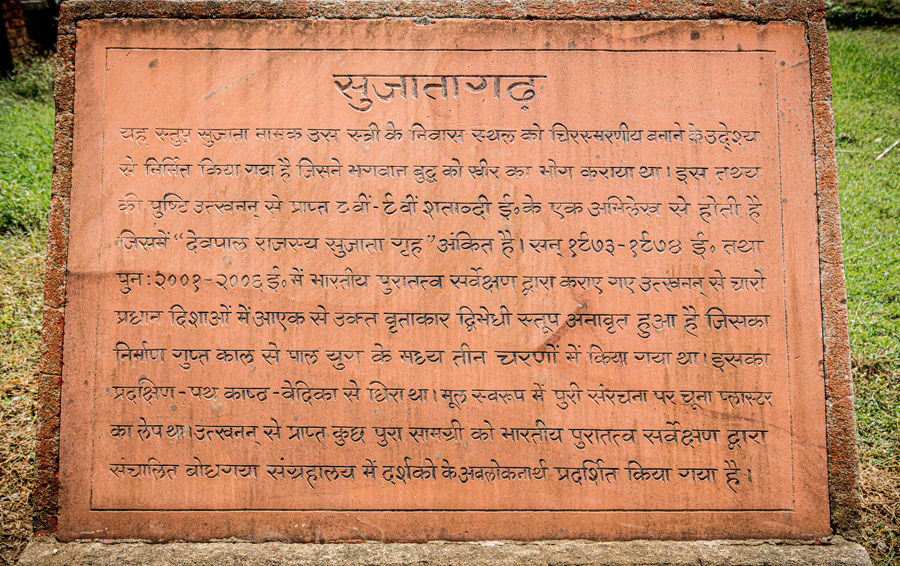 सुजातागढ़
यह स्तुप सुजाता नामक उस स्त्री के निवास स्थल को चिरस्मरणीय बनाने के उद्देश्य
से निर्मित किया गया है जिसने भगवान बुद्ध को खीर का भोग कराया था। इस तथ्य
की पुष्टि उत्खनन् से प्राप्त ८वीं-९वीं शताब्दी ई॰ के एक अभिलेख से होती है
जिसमें “देवपाल राजस्य सुजाता गृह” अंकित है। सन् १९७३-१९७४ ई॰ तथा
पुन: २००१-२००६ ई॰ में भारतीय पुरातत्व सर्वेक्षण द्वारा कराए गए उत्खनन् से चारो
प्रधान दिशाओं में आएक से उक्त वृताकार द्विभेधी स्तूप अनावृत हुआ है जिसका
निर्माण गुप्त काल से पाल युग के मध्य तीन चरणों में किया गया था। इसका
प्रदक्षिण-पथ काष्ठ-वेदिका से घिरा था। मूल स्वरूप में पुरी संरचना पर चूना प्लास्टर
का लेप था। उत्खनन् से प्राप्त कुछ पुरा सामग्री को भारतीय पुरातत्व सर्वेक्षण द्वारा
संचालित बोधगया संग्रहालय में दर्शको के अवलोकनार्थ प्रदर्शित किया गया है।